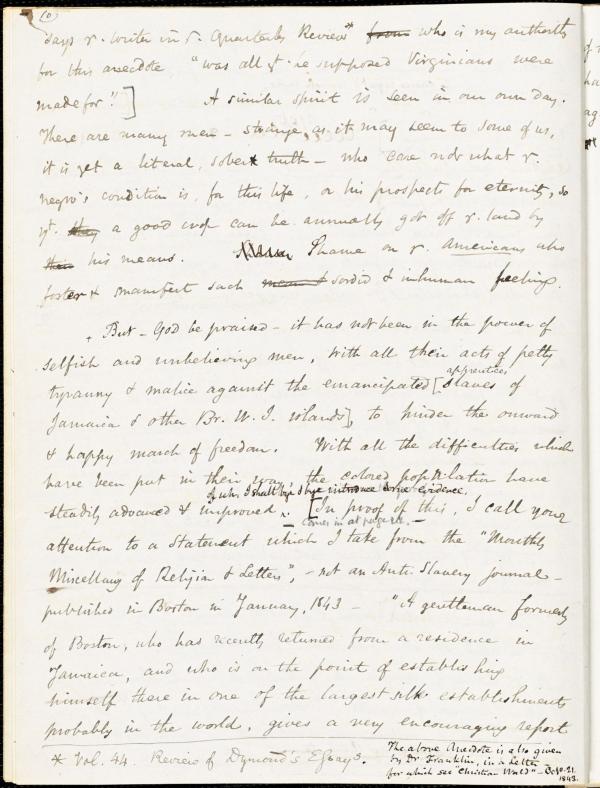 (6)
says yͬ. writer in yͤ. Quarterly Review* from who is my authority
for this anecdote "was all yͭ. he supposed Virginians were
made for"!] A similar spirit is seen in our own day.
There are many men – strange, as it may seem to some of us,
it is yet a literal, sober truth – who care not what yͤ.
negro's condition is, for this life, or his prospects for eternity, so
yͭ. they a good crop can be annually got off yͤ. land by
their his means. Shame on yͤ. Americans who
foster & manifest such sordid & inhuman feeling.
But – God be praised – it has not been in the power of
selfish and unbelieving men, with all their acts of petty
apprentices
tyranny & malice against the emancipated [slaves of
Jamaica & other Br. W. I. islands], to hinder the onward
& happy march of freedom. With all the difficulties which
have been put in their way, the colored population have
of whh. I shall bye & bye introduce some evidence.
steadily advanced & improved. [In proof of this, I call your
comes in at page
attention to a Statement which I take from the "Monthly
Miscellany of Religion & Letters", – not an Anti-Slavery journal –
published in Boston in January, 1843 – "A gentleman formerly
of Boston, who has recently returned from a residence in
Jamaica, and who is on the point of establishing
himself there in one of the largest silk establishments
probably in the world, gives a very encouraging report
* Vol. 44. Review of Dymond's Essays.
The above Anecdote is also given
by Dr. Franklin, in a Letter
for which see "Christian World" – Oct. 21.
1843.